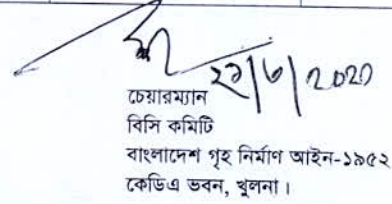 ২১/৬/২০২১
চেয়ারম্যান
বিসি কমিটি
বাংলাদেশ গৃহ নির্মাণ আইন-১৯৫২
কেডিএ ভবন, খুলনা।